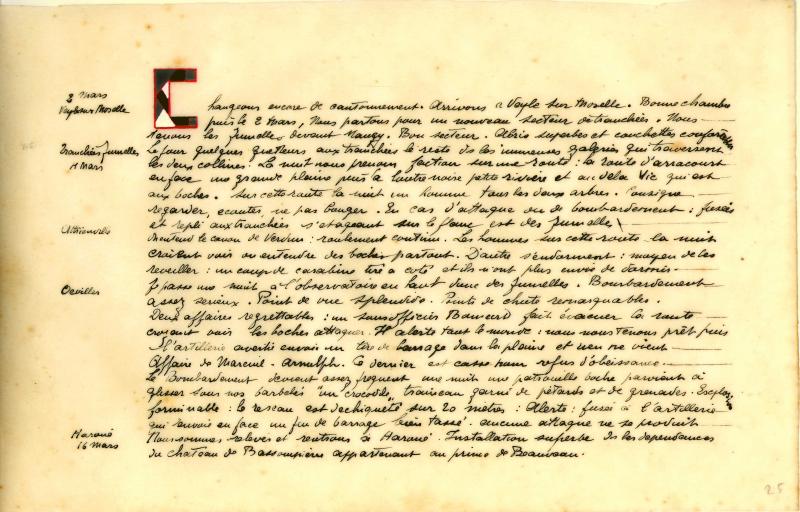 2 Mars
Veyle sur Moselle
Changeons encore de cantonnement. Arrivons à Veyle sur Moselle. Bonne chambre
puis le 2 Mars, Nous partons pour un nouveau secteur de tranchées. Nous
tenons les Jumelles devant Nancy. Bon secteur. Abris superbes et couchettes
Tranchées Jumelles
4 Mars
Le jour quelques guetteurs aux tranchées le reste ds les immenses galeries qui traversent
les deux collines. La nuit nous prenons faction sur une route : la route d'arracourt
en face une grande plaine puis à la petite rivière et au dela Vic qui est
aux boches. Sur cette route la nuit un homme tous les deux arbres. Consigne
regarder, ecouter, ne pas bouger. En cas d'attaque ou de bombardement, fusées
et repli aux tranchées s'etageant sur le flanc est des Jumelles
On entend le canon de Verdun : roulement continu. Les hommes sur cette route la nuit
croient voir ou entendre des boches partout. D'autres s'endorment : moyen de les
reveiller : un coup de carabine tiré à coté et ils n'ont plus envie de dormir.
Je passe une nuit à l'observatoire en haut d'une des Jumelles. Bombardement
Oevilles
assez serieux. Point de vue splendide. Points de chute remarquables.
Deux affaires regrettables : un sous officier fait évacuer la route
croyant voir les boches attaquer. Il alerte tout le monde : nous nous tenons prêt puis
l'artillerie avertie envoie un tir de barrage dans la plaine et rien ne vient
Affaire de Marcuil - Arnulph. Ce dernier est cassé pour refus d'obeissance.
Le Bombardement devient assez frequent une nuit une patrouille boche parvient à
glisser sous nos barbelés "un crocodile" traineau garni de pétards et de grenades. Explosion
formidable : le reseau est dechiqueté sur 20 mètres : Alerte : fusée à l'artillerie
qui envoie en face un feu de barrage bien tassé. aucune attaque ne se produit
Haroué
16 Mars
Nous sommes relevés et rentrons à Haroué. Installation superbe ds les dependances
du château de Bassompierre appartenant au prince de Beauveau.
25